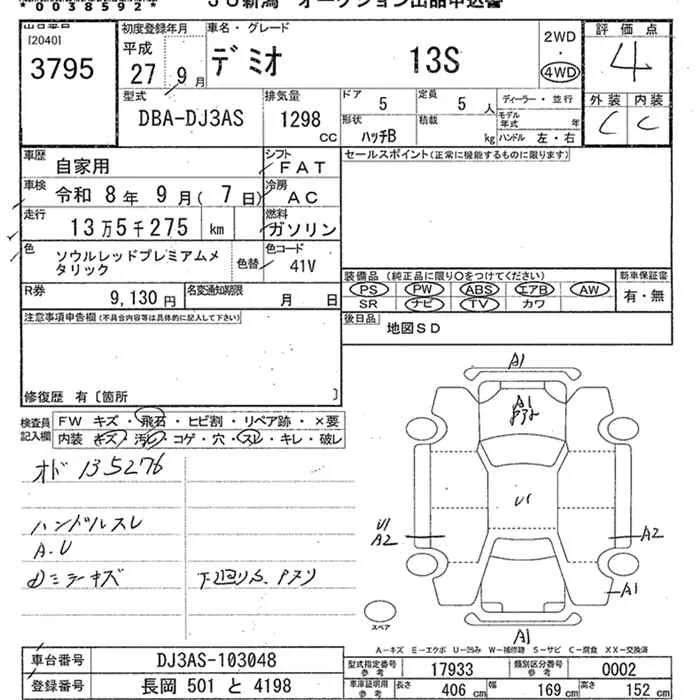 *0038592*
JU新潟 オークション出品申込書
[2040]
3795
初度登録年月
平成
27 9月
車名・グレード
デミオ 13S
2WD
・
4WD
評価点
4
外装 内装
C C
型式
DBA-DJ3AS
排気量
1298 CC
ドア 5
定員 5 人
ディーラー・並行
形状 ハッチB
積載 kg
モデル年式 年
ハンドル 左・右
車歴 自家用
シフト FAT
セールスポイント(正常に機能するものに限ります)
車検 令和 8年 9月( 7日)
冷房 AC
走行 13万5千275 km
燃料 ガソリン
色 ソウルレッドプレミアムメタリック
色替
色コード 41V
装備品(純正品に限り〇をつけてください)
新車保証書
PS PW ABS エアB AW
有・無
SR ナビ TV カワ
R券 9,130円
名変通知期限 月 日
後日品 地図SD
注意事項申告欄(不具合内容等は具体的に記入して下さい)
修復歴 有〔箇所 〕
検査員記入欄
FW キズ・飛石・ヒビ割・リペア跡・×要
内装 キズ・汚レ・コゲ・穴・スレ・キレ・破レ
オド 135276
ハンドルスレ
A.U
ミラーキズ
下回りS.
A1
A1
U1
U1
A2
A2
A1
A1
スペア
A-キズ E-エクボ U-凹み W-補修跡 S-サビ C-腐食 XX-交換済
車台番号 DJ3AS-103048
型式指定番号参考 17933
類別区分番号参考 0002
登録番号 長岡 501 と 4198
車庫証明用参考 長さ 406 cm 幅 169 cm 高さ 152 cm